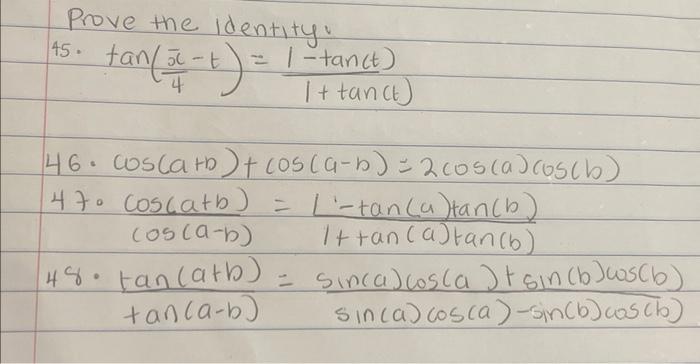 Prove the identity.
45. tan(π/4 - t) = 1 - tan(t) / 1 + tan(t)
46. cos(a+b) + cos(a-b) = 2cos(a)cos(b)
47. cos(a+b) / cos(a-b) = 1 - tan(a)tan(b) / 1 + tan(a)tan(b)
48. tan(a+b) / tan(a-b) = sin(a)cos(a) + sin(b)cos(b) / sin(a)cos(a) - sin(b)cos(b)